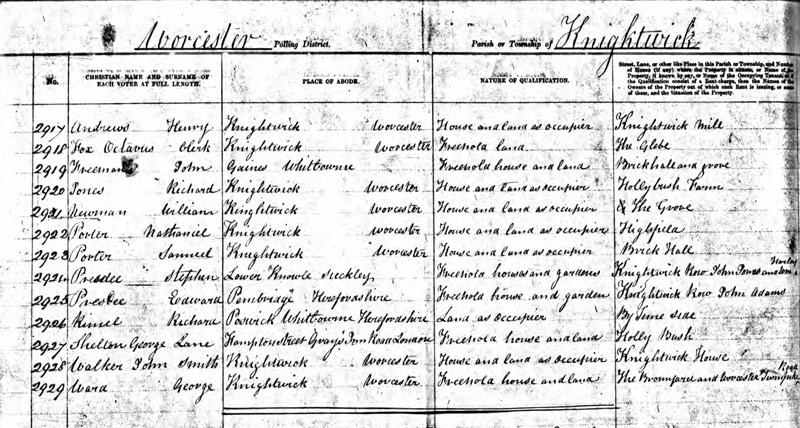 Worcester Polling District. Parish or Township of Knightwick
No. CHRISTIAN NAME AND SURNAME OF EACH VOTER AT FULL LENGTH. PLACE OF ABODE. NATURE OF QUALIFICATION. Street, Lane, or other like Place in this Parish or Township, and Number of House (if any) where the Property is situate, or Name of the Property, if known by any, or Name of the Occupying Tenant, or if the Qualification consist of a Rent-charge, then the Names of the Owners of the Property out of which such Rent is issuing, or some of them, and the Situation of the Property.
2917 Andrews Henry Knightwick Worcester House and land as occupier Knightwick Mill
2918 Fox Octavus Clerk Knightwick Worcester Freehold land The Glebe
2919 Freeman John Gaines Whitbourne Freehold house and land Brickhall and grove
2920 Jones Richard Knightwick Worcester House and land as occupier Hollybush Farm
2921 Newman William Knightwick Worcester House and land as occupier & The Grove
2922 Porter Nathaniel Knightwick Worcester House and land as occupier Highfield
2923 Porter Samuel Knightwick Worcester House and land as occupier Brick Hall
2924 Presdee Stephen Lower Knowle Suckley Freehold houses and gardens Knightwick Row John Jones and
2925 Presdee Edward Pembridge Herefordshire Freehold house and garden Knightwick Row John Adams
2926 Richard Whitbourne Herefordshire Land as occupier By Teme side
2927 Shelton George Lane Hampton Street Gray's Inn Road London Freehold house and land Holly Bush
2928 Walker John Smith Knightwick Worcester House and land as occupier Knightwick House
2929 Ward George Knightwick Worcester Freehold house and land The Bromyard and Worcester Turnpike Road